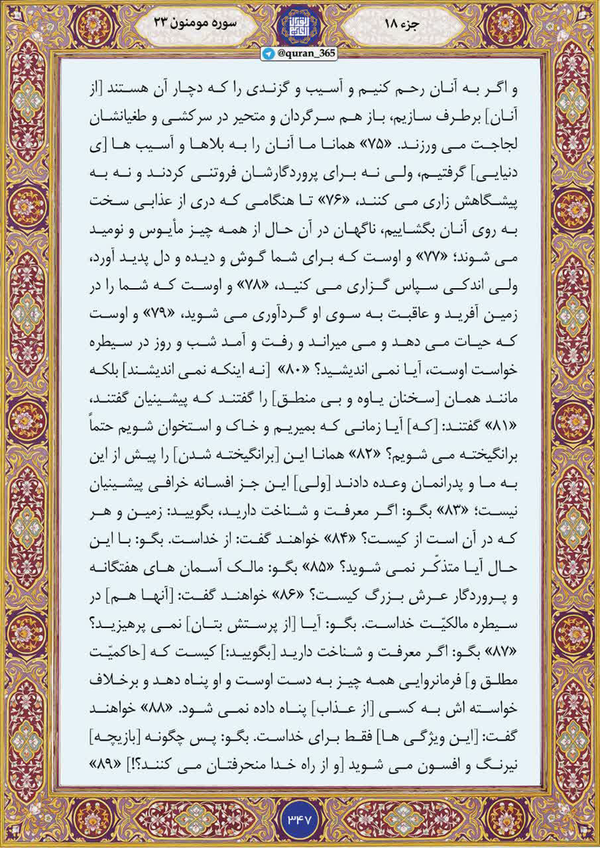 جزء ۱۸
سوره مومنون ۲۳
@quran_365
و اگر به آنان رحم کنیم و آسیب و گزندی را که دچار آن هستند [از
آنان] برطرف سازیم، باز هم سرگردان و متحیر در سرکشی و طغیانشان
لجاجت می ورزند. «۷۵» همانا ما آنان را به بلاها و آسیب ها [ی
دنیایی] گرفتیم، ولی نه برای پروردگارشان فروتنی کردند و نه به
پیشگاهش زاری می کنند، «۷۶» تا هنگامی که دری از عذابی سخت
به روی آنان بگشاییم، ناگهان در آن حال از همه چیز مأیوس و نومید
می شوند؛ «۷۷» و اوست که برای شما گوش و دیده و دل پدید آورد،
ولی اندکی سپاس گزاری می کنید، «۷۸» و اوست که شما را در
زمین آفرید و عاقبت به سوی او گردآوری می شوید، «۷۹» و اوست
که حیات می دهد و می میراند و رفت و آمد شب و روز در سیطره
خواست اوست، آیا نمی اندیشید؟ «۸۰» [نه اینکه نمی اندیشند] بلکه
مانند همان [سخنان یاوه و بی منطق] را گفتند که پیشینیان گفتند،
«۸۱» گفتند: [که] آیا زمانی که بمیریم و خاک و استخوان شویم حتماً
برانگیخته می شویم؟ «۸۲» همانا این [برانگیخته شدن] را پیش از این
به ما و پدرانمان وعده دادند [ولی] این جز افسانه خرافی پیشینیان
نیست؛ «۸۳» بگو: اگر معرفت و شناخت دارید، بگویید: زمین و هر
که در آن است از کیست؟ «۸۴» خواهند گفت: از خداست. بگو: با این
حال آیا متذکّر نمی شوید؟ «۸۵» بگو: مالک آسمان های هفتگانه
و پروردگار عرش بزرگ کیست؟ «۸۶» خواهند گفت: [آنها هم] در
سیطره مالکیّت خداست. بگو: آیا [از پرستش بتان] نمی پرهیزید؟
«۸۷» بگو: اگر معرفت و شناخت دارید [بگویید:] کیست که [حاکمیّت
مطلق و] فرمانروایی همه چیز به دست اوست و او پناه دهد و برخلاف
خواسته اش به کسی [از عذاب] پناه داده نمی شود. «۸۸» خواهند
گفت: [این ویژگی ها] فقط برای خداست. بگو: پس چگونه [بازیچه]
نیرنگ و افسون می شوید [و از راه خدا منحرفتان می کنند؟!] «۸۹»
۳۴۷